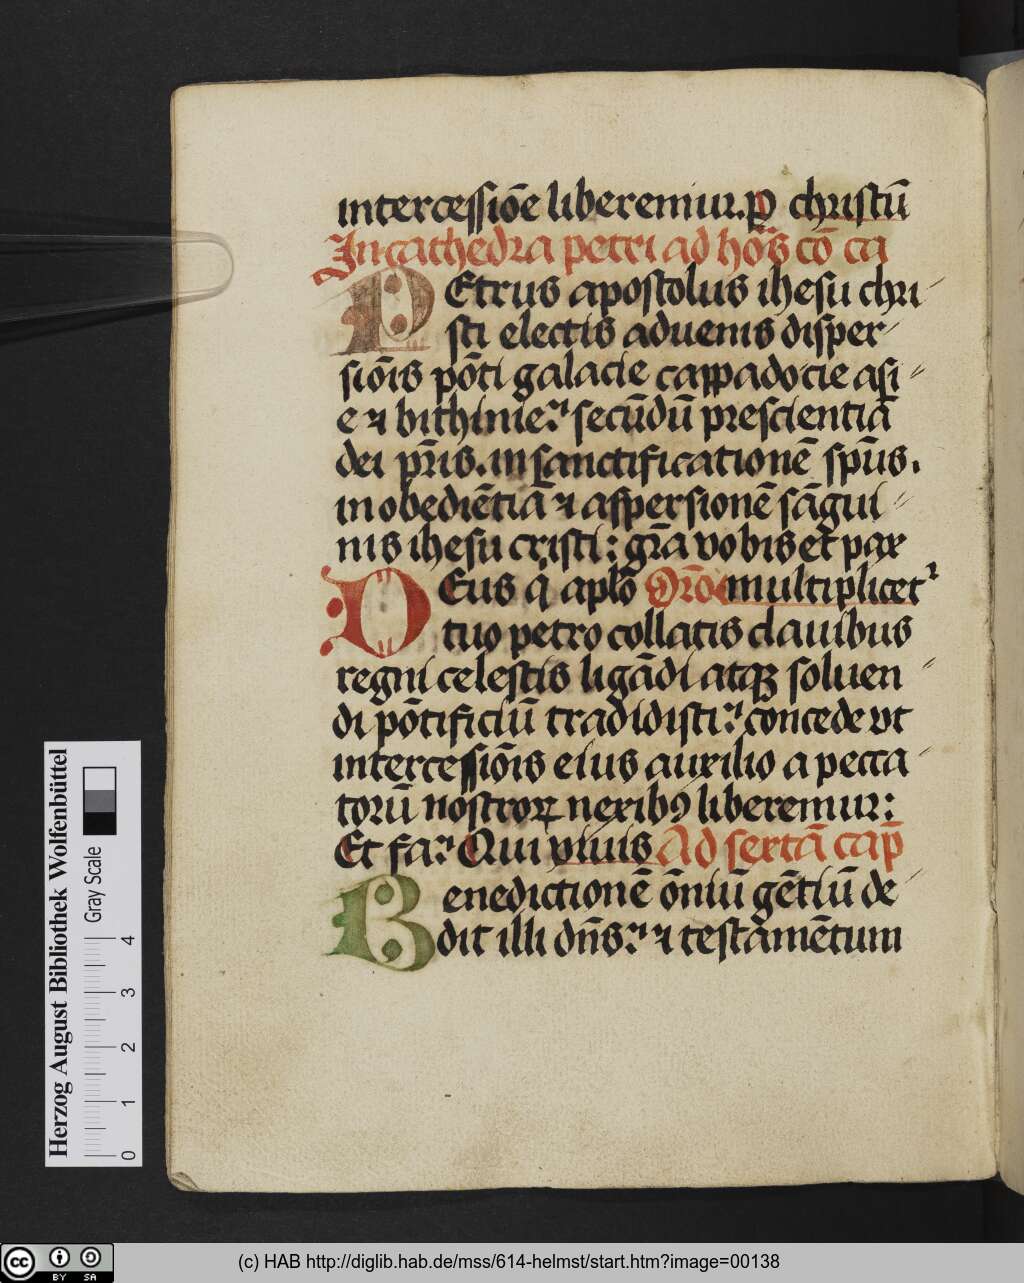 intercessiōe liberemur. ꝑ christū
In cathedra petri ad hōs cō ca
PEtrus apostolus ihesu chri
sti electis aduenis disper
siōis pōti galacie cappadocie asi
e ⁊ bithinie: secūdū prescientiā
dei pr̄is. in sanctificationē spūs.
in obediētiā ⁊ aspersionē sāgui
nis ihesu cristi: gr̄a vobis et pax
DEus q̄ aplo Orō multiplicet᷑
tuo petro collatis clauibus
regni celestis ligādi atqꝫ soluen
di pōtificiū tradidisti: concede vt
intercessiōis eius auxilio a pecca
torū nostroꝝ nexibꝰ liberemur:
Et fa: Qui viuis Ad sextā cap̄
Benedictionē ōniū gētiū de
dit illi dn̄s: ⁊ testamētum
Herzog August Bibliothek Wolfenbüttel
Gray Scale
0 1 2 3 4
cc BY SA
(c) HAB http://diglib.hab.de/mss/614-helmst/start.htm?image=00138